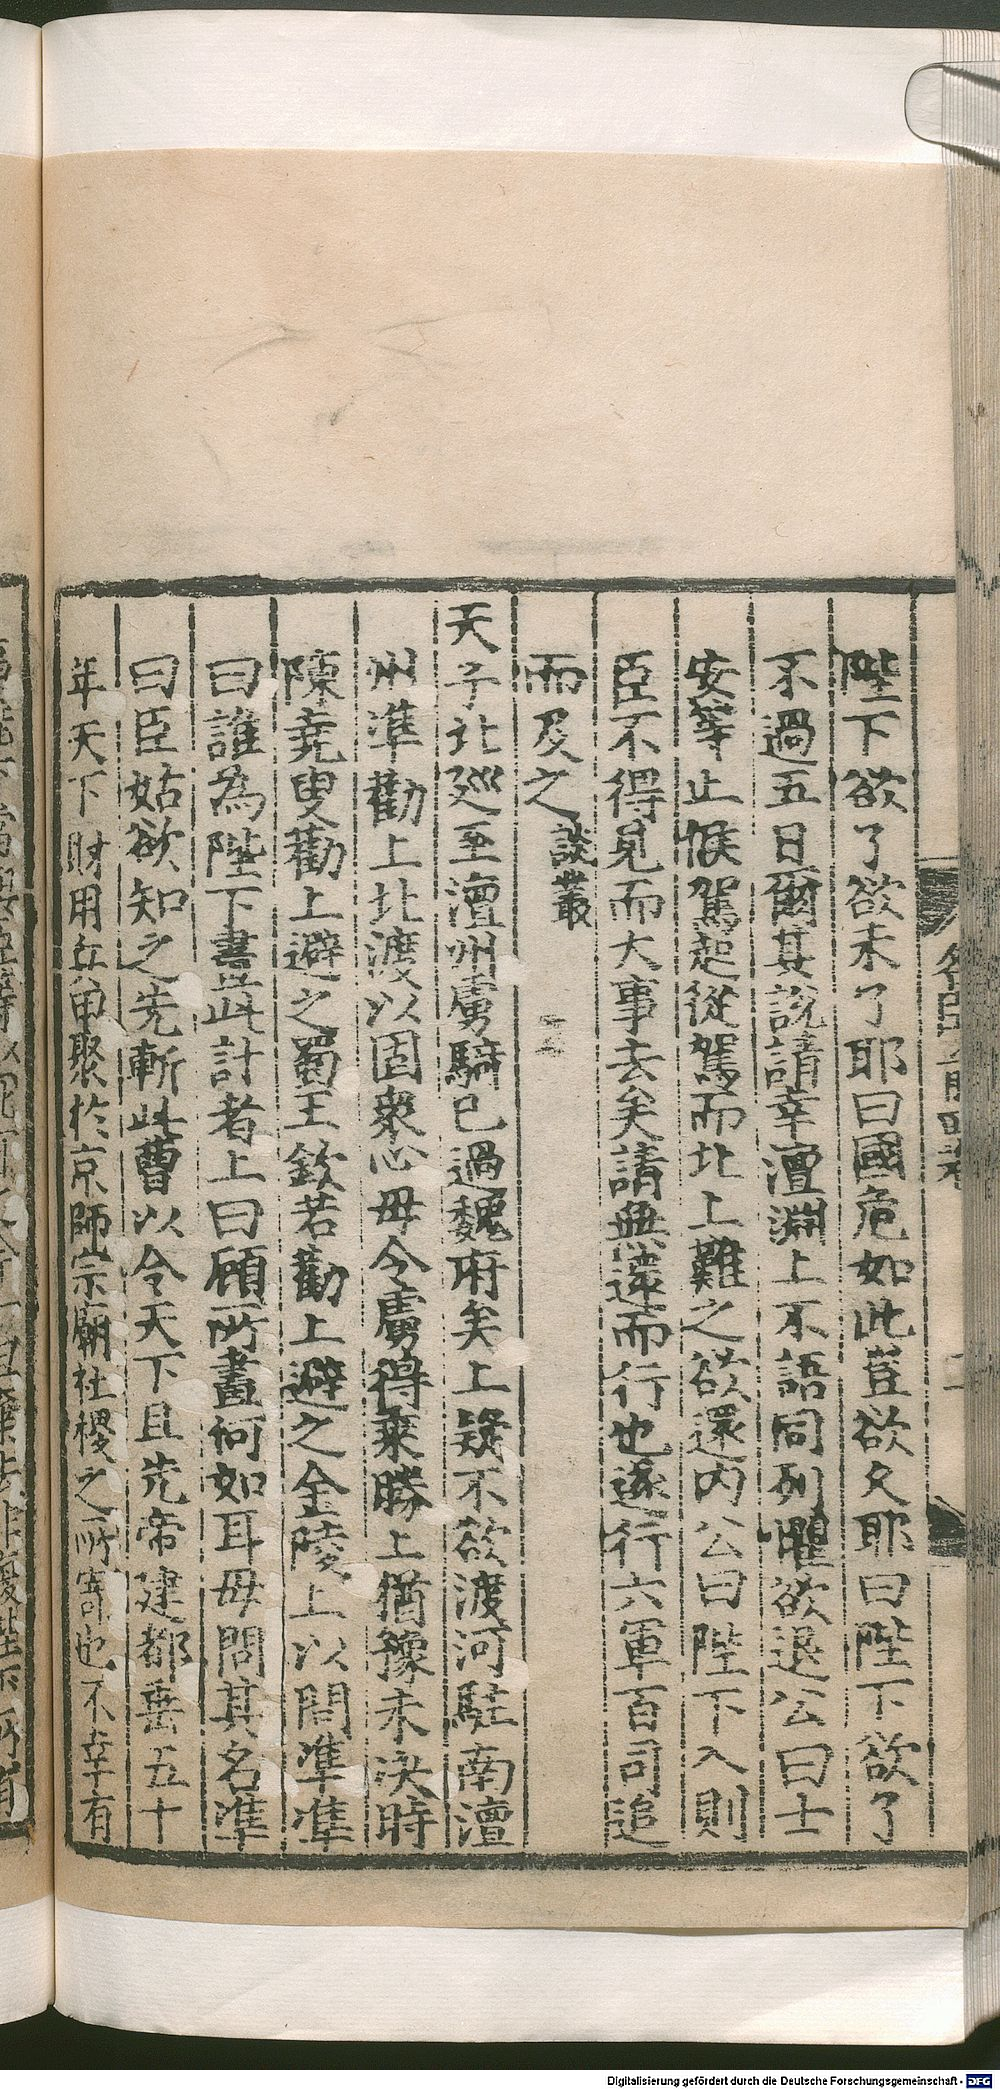 陛下欲了欲未了耶曰國危如此豈欲久耶曰陛下欲了
不過五日爾其說請幸澶淵上不語同列懼欲退公曰士
安等止候駕起從駕而北上難之欲還內公曰陛下入則
臣不得見而大事去矣請無還而行也遂行六軍百司追
而及之 談叢
天子北廵至澶州虜騎已過魏府矣上疑不欲渡河駐南澶
州準勸上北渡以固衆心毋令虜得乗勝上猶豫未决時
陳堯叟勸上避之蜀王欽若勸上避之金陵上以問準準
曰誰為陛下畫此計者上曰顧所畫何如耳毋問其名準
曰臣姑欲知之先斬此曹以令天下且先帝建都垂五十
年天下財用兵甲聚於京師宗廟社稷之所寄也不幸有
Digitalisierung gefördert durch die Deutsche Forschungsgemeinschaft - DFG